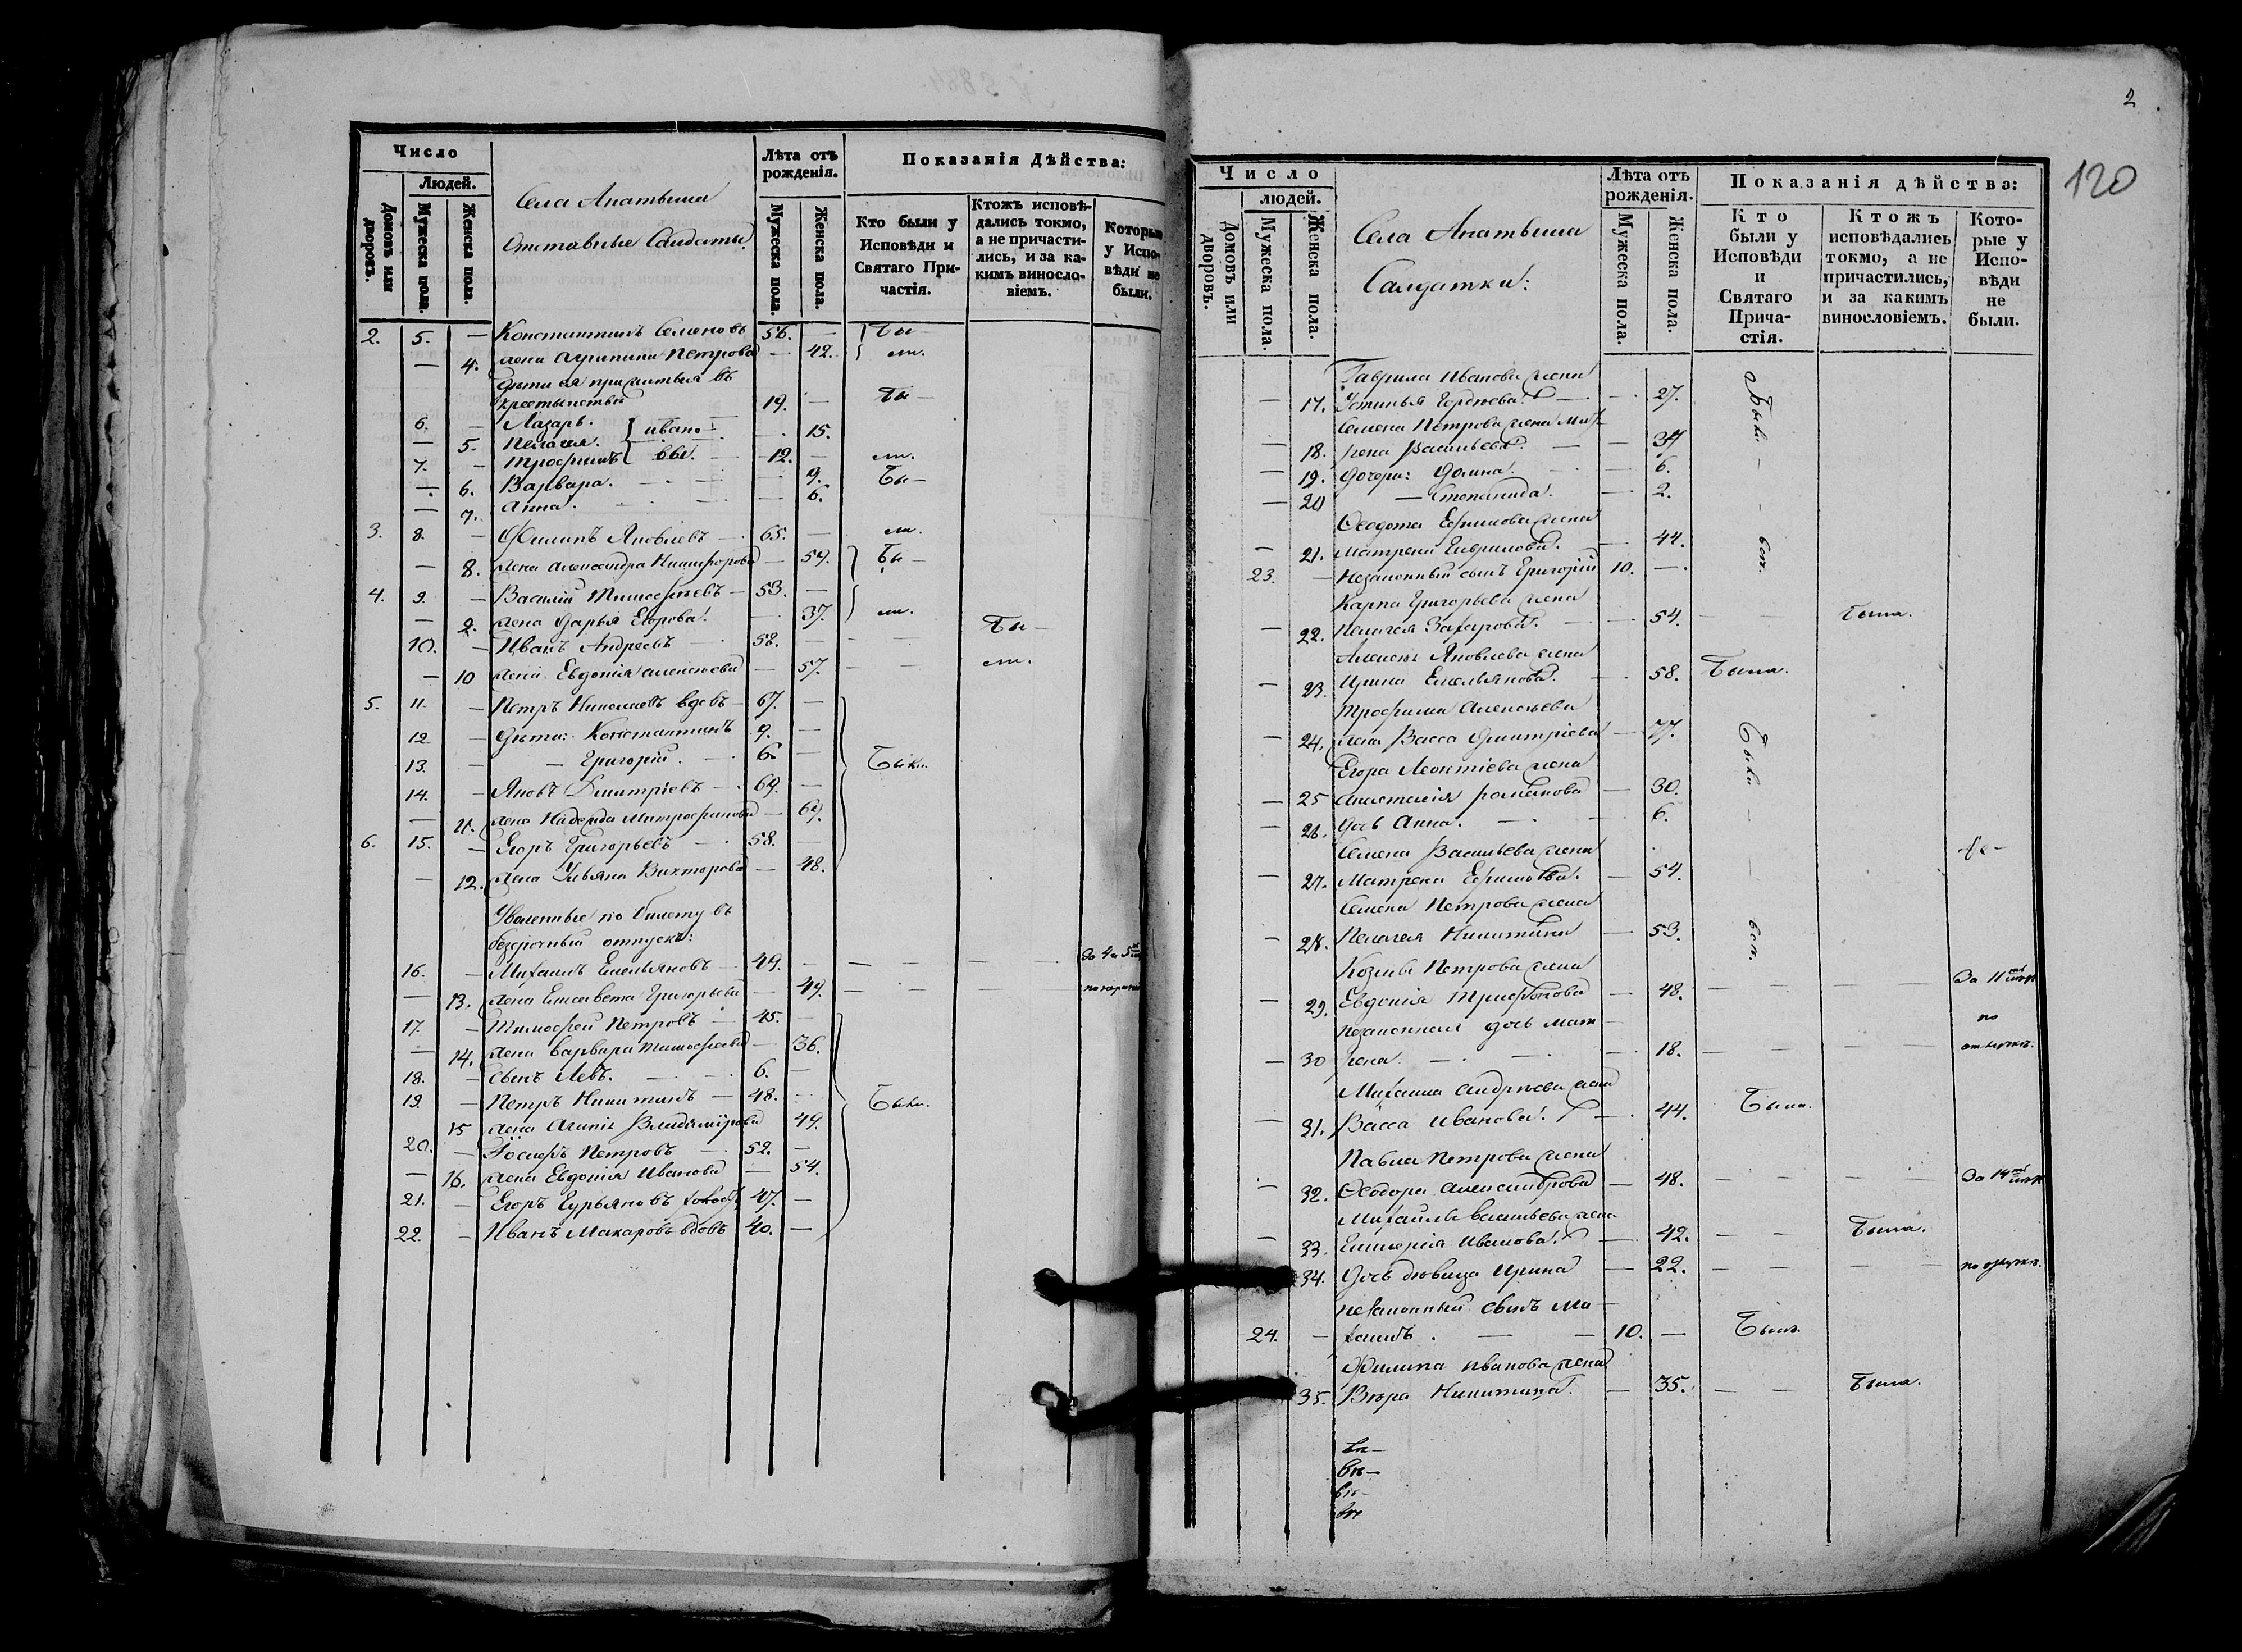 Число
Людей.
Домовъ или дворовъ.
Мужеска пола.
Женска пола.
Села Апатьина
Отставные Салдаты.
Лѣта отъ рожденія.
Мужеска пола.
Женска пола.
Показанія Дѣйства:
Кто были у Исповѣди и Святаго Причастія.
Ктожъ исповѣдались токмо, а не причастились, и за какимъ винословіемъ.
Которые у Исповѣди не были.
2. 5. — Константинъ Семеновъ 56. — Бы—
— 4. жена Агрипина Петрова — 42. ли.
Дѣти ея прижитыя въ
крестьянствѣ
6. — Лазарь. 19. — Бы—
— 5. Пелагея. Ивано— 15.
7. — Трофимъ вы. 12. — ли.
— 6. Варвара. 9. Бы—
— 7. Анна. — 6.
3. 8. — Филипъ Яковлевъ — 65. — ли.
— 8. жена Александра Никифорова — 59. Бы—
4. 9. — Василій Тимофѣевъ — 53. —
— 9. жена Дарья Егорова. 37. ли.
10. — Иванъ Андреевъ 58. — Бы—
— 10 жена Евдокія Алексѣева — 57. ли.
5. 11. — Петръ Николаевъ вдовъ — 67. —
12. — Дѣти: Константинъ 9. —
13. — Григорій. 6. — Были.
14. — Яковъ Дмитріевъ — 69. —
— 11. жена Надежда Митрофанова — 69.
6. 15. — Егоръ Григорьевъ — 58. —
— 12. жена Ульяна Викторова — 48.
Уволенные по билету въ
безсрочный отпускъ:
16. — Михаилъ Емельяновъ — 44. — — — — За 4 и 5
— 13. жена Елисавета Григорьева — 49. — — —
17. — Тимофей Петровъ — 45. —
— 14. жена Варвара Тимофеева — 36.
18. — Сынъ Левъ. — 6. —
19. — Петръ Никитинъ — 48. — Были.
15 жена Владимірова 49.
20. — Іосифъ Петровъ — 52. —
— 16. жена Евдокія Иванова — 54.
21. — Егоръ Гурьяновъ 47. —
22. — Иванъ Макаровъ вдовъ 40. —
2
120
Число
людей.
Домовъ или дворовъ.
Мужеска пола.
Женска пола.
Села Апатьина
Салдатки:
Лѣта отъ рожденія.
Мужеска пола.
Женска пола.
Показанія дѣйства:
Кто были у Исповѣди и Святаго Причастія.
Ктожъ исповѣдались токмо, а не причастились, и за какимъ винословіемъ.
Которые у Исповѣди не были.
Гаврила Иванова жена
— 17. Устинья Гордѣева. — 27. Были—
Семена Петрова жена Мат—
— 18. рена Васильева. — 34
— 19. Дочери: Домна. — 6.
— 20 — Степанида. — 2.
Ѳеодота Ефимова жена
— 21. Матрена Гаврилова. — 44.
23. — Незаконный сынъ Григорій 10. —
Карпа Григорьева жена
— 22. Пелагея Захарова. — 54. — — Была.
Алексѣя Яковлева жена
— 23. Ирина Емельянова. — 58. Была.
Трофима Алексѣева
— 24. жена Васса Дмитріева — 77. Были—
Егора Леонтіева жена
— 25 Анастасія Романова — 30.
— 26. Дочь Анна. — 6.
Семена Васильева жена
— 27. Матрена Ефимова. — 54.
Семена Петрова жена
— 28. Пелагея Никитина — 53.
Козмы Петрова жена
— 29. Евдокія Трифонова — 48. — — — — За 11
незаконная дочь Мат— по
— 30 рена. — 18. — — — — отлучк.
Михаила Андреева жена
— 31. Васса Иванова. — 44. Была.
Павла Петрова жена
— 32. Ѳеодора Александрова — 48. — — — — За 14
Михаилы Васильева жена
— 33. Гликерія Иванова. — 42. — — Была.
34. Дочь дѣвица Ирина — 22. — — — — по отлучк.
незаконный сынъ Ми—
24. — хаилъ. — 10. — Былъ.
Филипа Иванова жена
35. Вѣра Никитина. — 35. — — Была.